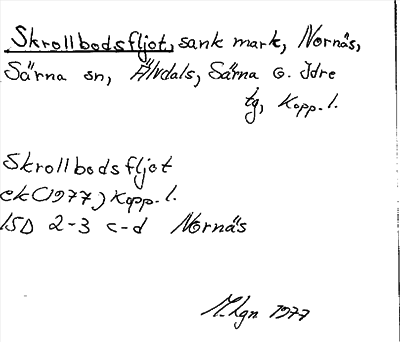 Skrollbodsfljot, sank mark, Nornäs,
Särna sn, Älvdals, Särna o. Idre
tg, Kopp. l.
Skrollbodsfljot
ek (1977) Kopp. l.
15D 2-3 c-d Nornäs
M.Lgn 1977